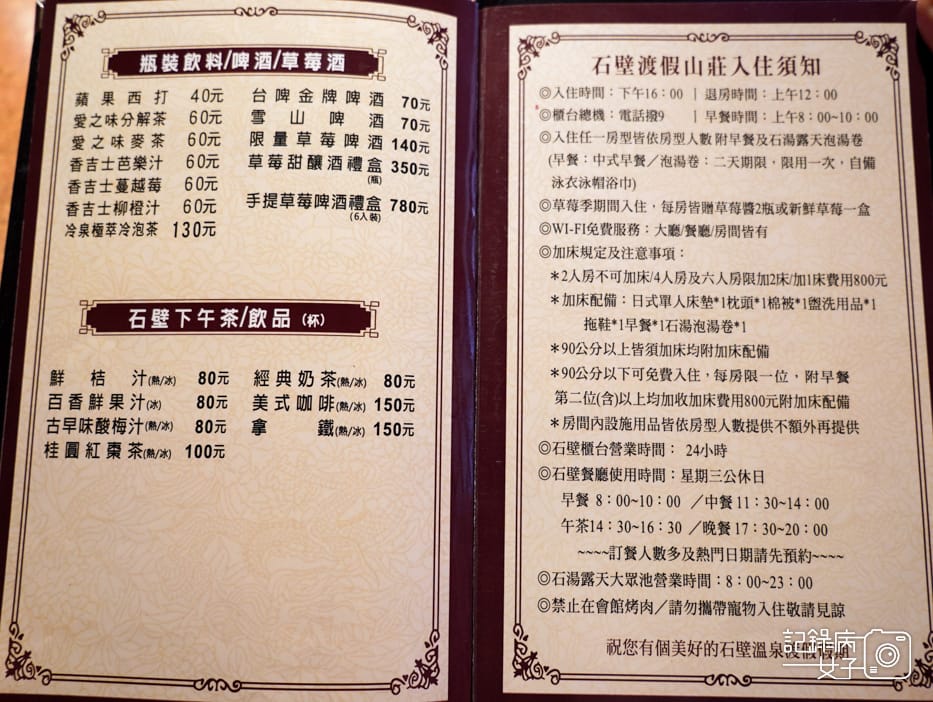 瓶裝飲料/啤酒/草莓酒
蘋果西打 40元
愛之味分解茶 60元
愛之味麥茶 60元
香吉士芭樂汁 60元
香吉士蔓越莓 60元
香吉士柳橙汁 60元
冷泉極萃冷泡茶 130元
台啤金牌啤酒 70元
雪山啤酒 70元
限量草莓啤酒 140元
草莓甜釀酒禮盒 350元
(瓶)
手提草莓啤酒禮盒 780元
(6人裝)
石壁下午茶/飲品(杯)
鮮桔汁(熱/冰) 80元
百香鮮果汁(冰) 80元
古早味酸梅汁(熱/冰) 80元
桂圓紅棗茶(熱/冰) 100元
經典奶茶(熱/冰) 80元
美式咖啡(熱/冰) 150元
拿鐵(熱/冰) 150元
石壁渡假山莊入住須知
◎入住時間：下午16：00 | 退房時間：上午12：00
◎櫃台總機：電話撥9 | 早餐時間：上午8：00~10：00
◎入住任一房型皆依房型人數 附早餐及石湯露天泡湯卷
(早餐：中式早餐／泡湯卷：二天期限，限用一次，自備
泳衣泳帽浴巾)
◎草莓季期間入住，每房皆贈草莓醬2瓶或新鮮草莓一盒
◎WI-FI免費服務：大廳/餐廳/房間皆有
◎加床規定及注意事項：
＊2人房不可加床/4人房及六人房限加2床/加1床費用800元
＊加床配備：日式單人床墊*1枕頭*1棉被*1盥洗用品*1
拖鞋*1早餐*1石湯泡湯卷*1
＊90公分以上皆須加床均附加床配備
＊90公分以下可免費入住，每房限一位，附早餐
第二位(含)以上均加收加床費用800元附加床配備
＊房間內設施用品皆依房型人數提供不額外再提供
◎石壁櫃台營業時間： 24小時
◎石壁餐廳使用時間：星期三公休日
早餐 8：00~10：00 ／中餐 11：30~14：00
午茶14：30~16：30 ／晚餐 17：30~20：00
~~~~訂餐人數多及熱門日期請先預約~~~~
◎石湯露天大眾池營業時間：8：00~23：00
◎禁止在會館烤肉／請勿攜帶寵物入住敬請見諒
祝您有個美好的石壁溫泉渡假假期
記錄病
女子